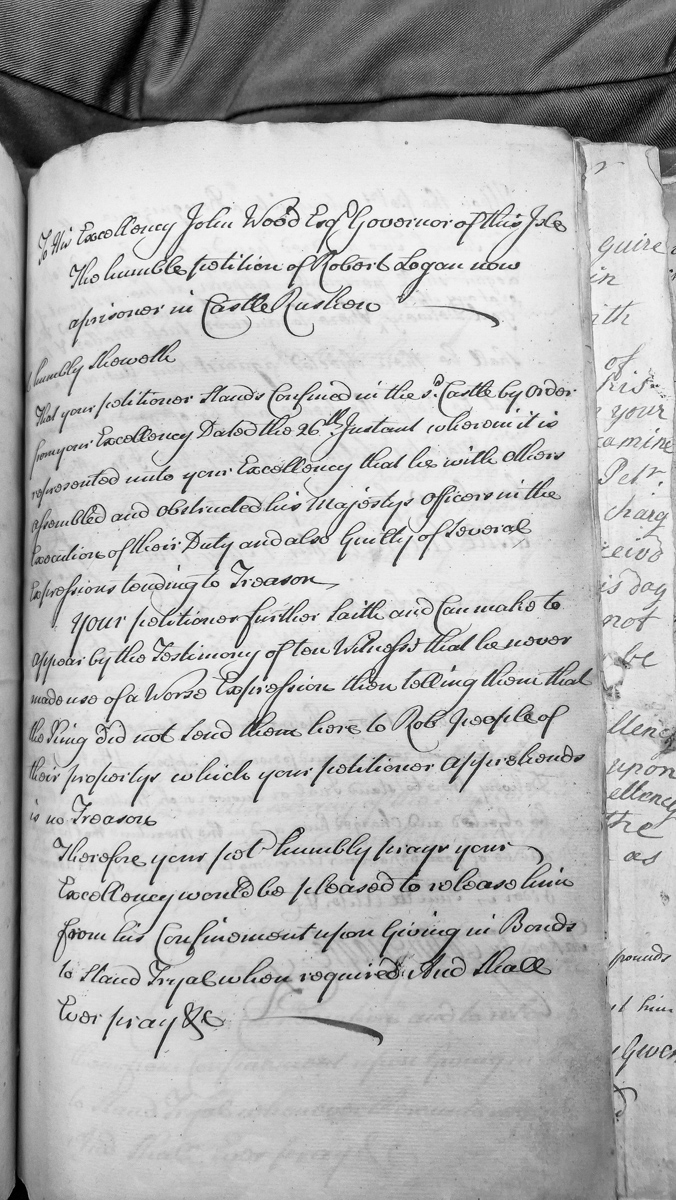 To His Excellency John Wood Esqr Governor of this Isle
The humble petition of Robert Logan now
a prisoner in Castle Rushen
humbly Sheweth
That your petitioner Stands Confined in the sd. Castle by Order
from your Excellency Dated the 26th Instant wherein it is
represented unto your Excellency that he with others
assembled and obstructed his Majestys Officers in the
Execution of their Duty and also Guilty of Several
Expressions tending to Treason
Your petitioner further Saith and Can make to
appear by the Testimony of ten Witnesses that he never
made use of a Worse Expression then telling them that
the King did not Send them here to Rob people of
their propertys which your petitioner apprehends
is no Treason
Therefore your pet humbly prays your
Excellency would be pleased to release him
from his Confinement upon Giving in Bonds
to Stand Tryal when required And Shall
Ever pray &c
quire
in
ith
of
his
your
camine
Petr.
charg
ceivd
is day
not
be
llency
upon
ellency
the
as
pounds
t him
Given